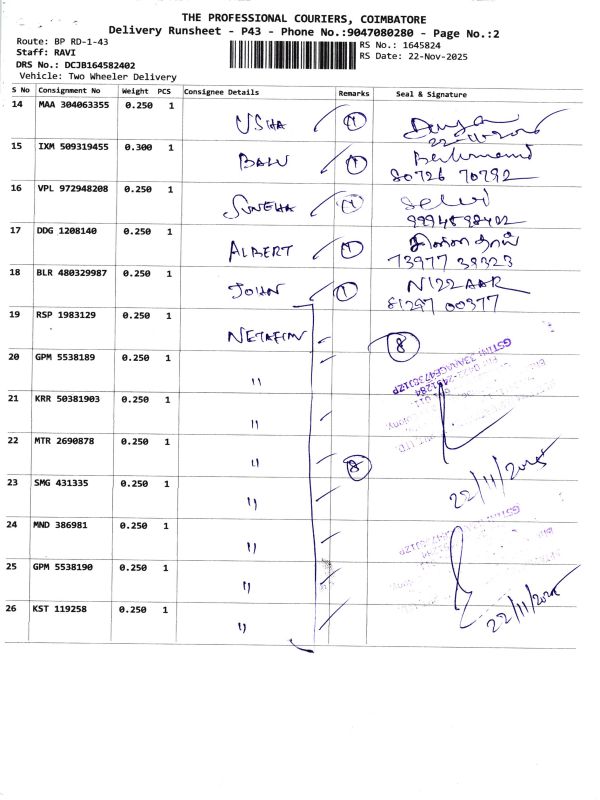 THE PROFESSIONAL COURIERS, COIMBATORE
Delivery Runsheet - P43 - Phone No.:9047080280 - Page No.:2
Route: BP RD-1-43
Staff: RAVI
DRS No.: DCJB164582402
Vehicle: Two Wheeler Delivery
RS No.: 1645824
RS Date: 22-Nov-2025
S No Consignment No Weight PCS Consignee Details Remarks Seal & Signature
14 MAA 304063355 0.250 1 USHA 1
15 IXM 509319455 0.300 1 BALU 1
80726 70792
16 VPL 972948208 0.250 1 SUNEHA 1 Selvi
9994898402
17 DDG 1208140 0.250 1 ALBERT 1
73977 39323
18 BLR 480329987 0.250 1 JOHN 1 NIZZAAR
81297 00377
19 RSP 1983129 0.250 1 NETAFIM 8
20 GPM 5538189 0.250 1 "
21 KRR 50381903 0.250 1 "
22 MTR 2690878 0.250 1 " 8
22/11/2025
23 SMG 431335 0.250 1 "
24 MND 386981 0.250 1 "
25 GPM 5538190 0.250 1 "
26 KST 119258 0.250 1 "
22/11/2025